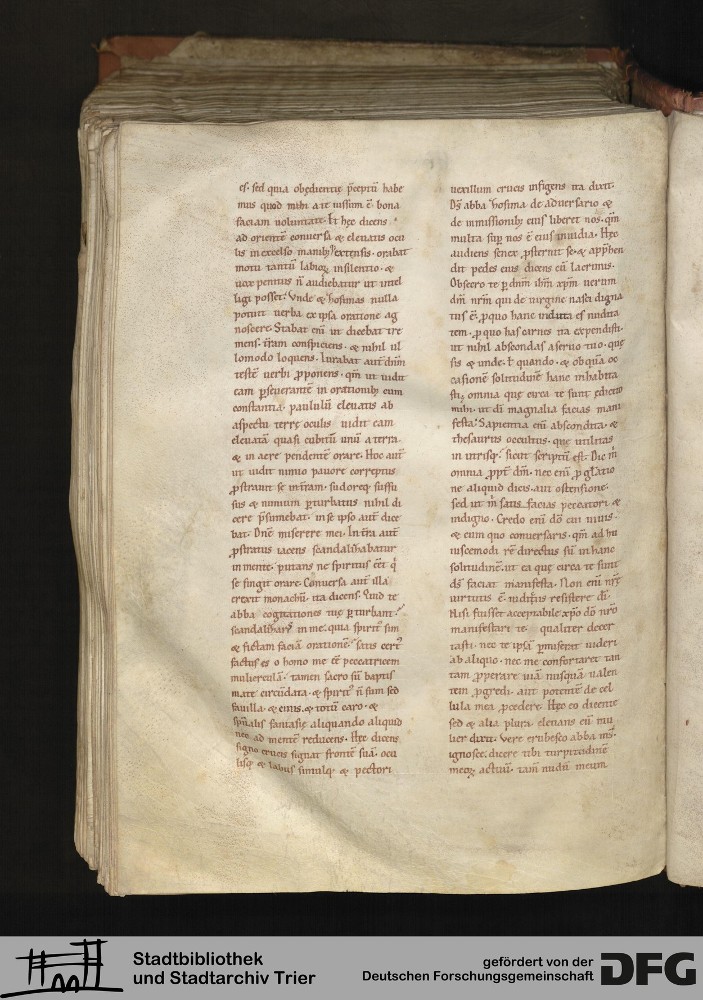 es. sed quia obedientię p̄ceptū habe
mus quod mihi a te iussum ē. bona
faciam voluntate. Et hęc dicens
ad orientē conversa & elevatis ocu
lis in excelso manibꝰ extensis. orabat
motu tantū labiorꝫ in silentio. &
vox penitus n̄ audiebatur ut intel
ligi posset. Unde & hosimas nulla
potuit verba ex ipsa oratione ag
noscere. Stabat enī ut dicebat tre
mens. t̄ram conspiciens. & nihil ul
lomodo loquens. Iurabat aut̄ dn̄m
testē verbi p̱ponens. qm̄ ut vidit
eam p̱severantē in orationibꝰ cum
constantia. paululū elevatis ab
aspectu terrę oculis vidit eam
elevatā quasi cubitū unū a terra.
& in aere pendentē orare. Hoc aut̄
ut vidit nimio pavore correptus
p̱stravit se in t̄ram. sudoreqꝫ suffu
sus & nimium p̱turbatus nihil di
cere p̄sumebat. in se ipso aut̄ dice
bat. Dn̄e miserere mei. In t̄ra aut̄
p̱stratus iacens scandalizabatur
in mente. putans ne spiritus eēt q̇
se fingit orare. Conversa aut̄ illa
erexit monachū. ita dicens. Quid te
abba cogitationes tuę p̱turbant.
scandalizariꝰ in me. quia spiritꝰ sim
& fictam faciā orationē. satis certꝰ
factus es o homo me eē peccatricem
mulierculā. tamen sacro sū baptis
mate circūdata. & spiritꝰ n̄ sum sed
favilla. & cinis. & totū caro. &
spūalis fantasię aliquando aliquid
nec ad mentē reducens. Hęc dicens
signo crucis signat frontē suā. ocu
lisqꝫ & labiis simulqꝫ & pectori
vexillum crucis infigens ita dixit.
Ds̄ abba hosima de adversario &
de inmissionibꝰ eius liberet nos. qm̄
multa sup̱ nos ē eius invidia. Hęc
audiens senex p̱strernit se. & app̱hen
dit pedes eius dicens cū lacrimis.
Obsecro te p̱ dn̄m ihm̄ xp̄m verum
dm̄ nr̄m qui de virgine nasci digna
tus ē. p̱ quo hanc induta es nudita
tem. p̱ quo has carnes ita expendisti.
ut nihil abscondas a servo tuo. quę
sis & unde. l̄ quando. & ob quā oc
casionē solitudinē hanc inhabita
sti. & omnia quę circa te sunt edicito
mihi. ut di magnalia facias mani
festa. Sapientia enī abscondita. &
thesaurus occultus. que utilitas
in utrisqꝫ. sicut scriptū est. Dic m̄
omnia p̱pt̄ dm̄. nec enī p̱ gl̄atio
ne aliquid dicis. aut ostensione.
sed ut m̄ satis facias peccatori &
indigno. Credo enī dō cui vivis.
& cum quo conversaris. qm̄ ad hu
iuscemodi rē directus sū in hanc
solitudinē. ut ea quę circa te sunt
ds̄ faciat manifesta. Non enī nr̄ę
virtutis ē. iudiciis resistere di.
Nisi fuisset acceptabile xp̄o dō nr̄o
manifestari te. qualiter decer
tasti. nec te ipsā p̱miserit videri
ab aliquo. nec me confortaret tan
tam p̱perare viā nusquā valen
tem p̱gredi. aut potentē de cel
lula mea p̱cedere. Hęc eo dicente
sed & alia plura elevans eū mu
lier dixit. Vere erubesco abba mi.
ignosce. dicere tibi turpitudinē
meorꝫ actuū. tam̄ nudū meum
Stadtbibliothek
und Stadtarchiv Trier
gefördert von der
Deutschen Forschungsgemeinschaft
DFG